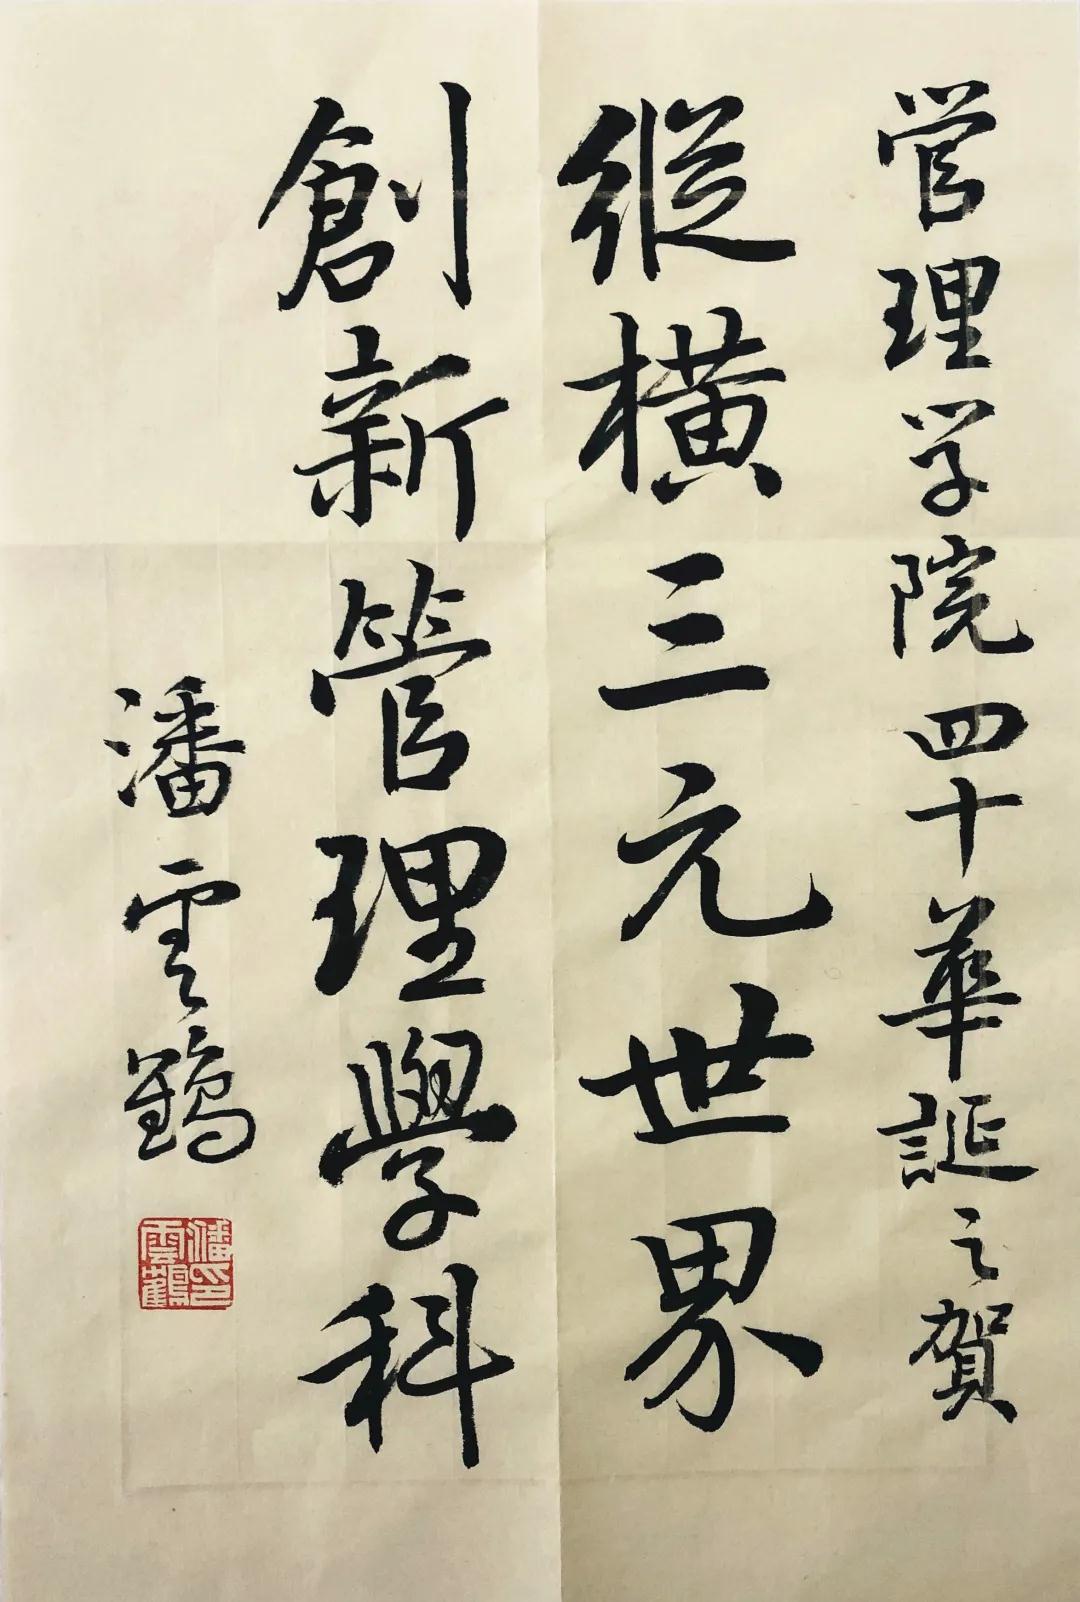 管理学院四十華誕之賀
縱橫三元世界
創新管理學科
潘雲鶴
潘雲鶴印